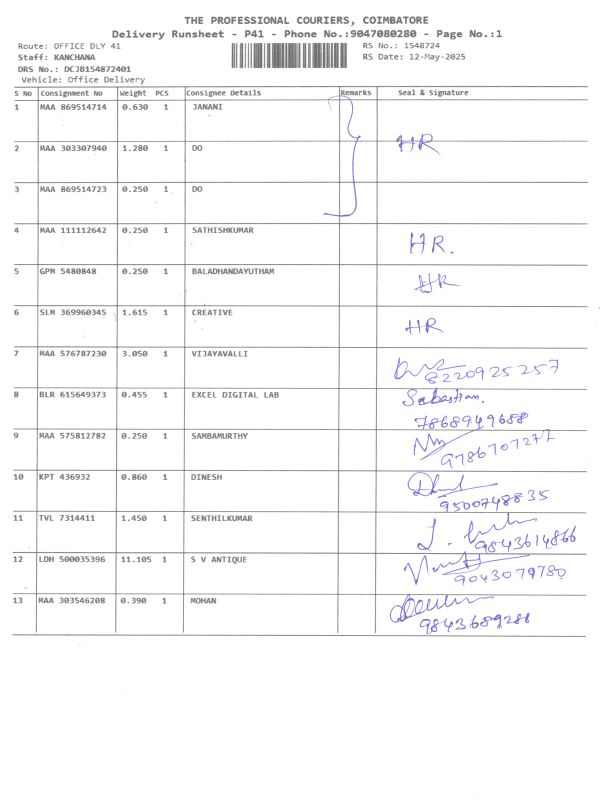 THE PROFESSIONAL COURIERS, COIMBATORE
Delivery Runsheet - P41 - Phone No.:9047080280 - Page No.:1
Route: OFFICE DLY 41 RS No.: 1548724
Staff: KANCHANA RS Date: 12-May-2025
DRS No.: DCJB154872401
Vehicle: Office Delivery
S No Consignment No Weight PCS Consignee Details Remarks Seal & Signature
1 MAA 869514714 0.630 1 JANANI
HR
2 MAA 303307940 1.280 1 DO
3 MAA 869514723 0.250 1 DO
4 MAA 111112642 0.250 1 SATHISHKUMAR
HR.
5 GPM 5480848 0.250 1 BALADHANDAYUTHAM
HR
6 SLM 369960345 1.615 1 CREATIVE
HR
7 MAA 576787230 3.050 1 VIJAYAVALLI
8220925257
8 BLR 615649373 0.455 1 EXCEL DIGITAL LAB Sabastian.
7868949688
9 MAA 575812782 0.250 1 SAMBAMURTHY
9786707277
10 KPT 436932 0.860 1 DINESH
9500748835
11 TVL 7314411 1.450 1 SENTHILKUMAR
9843614866
12 LDH 500035396 11.105 1 S V ANTIQUE
9043079780
13 MAA 303546208 0.390 1 MOHAN
9843689288